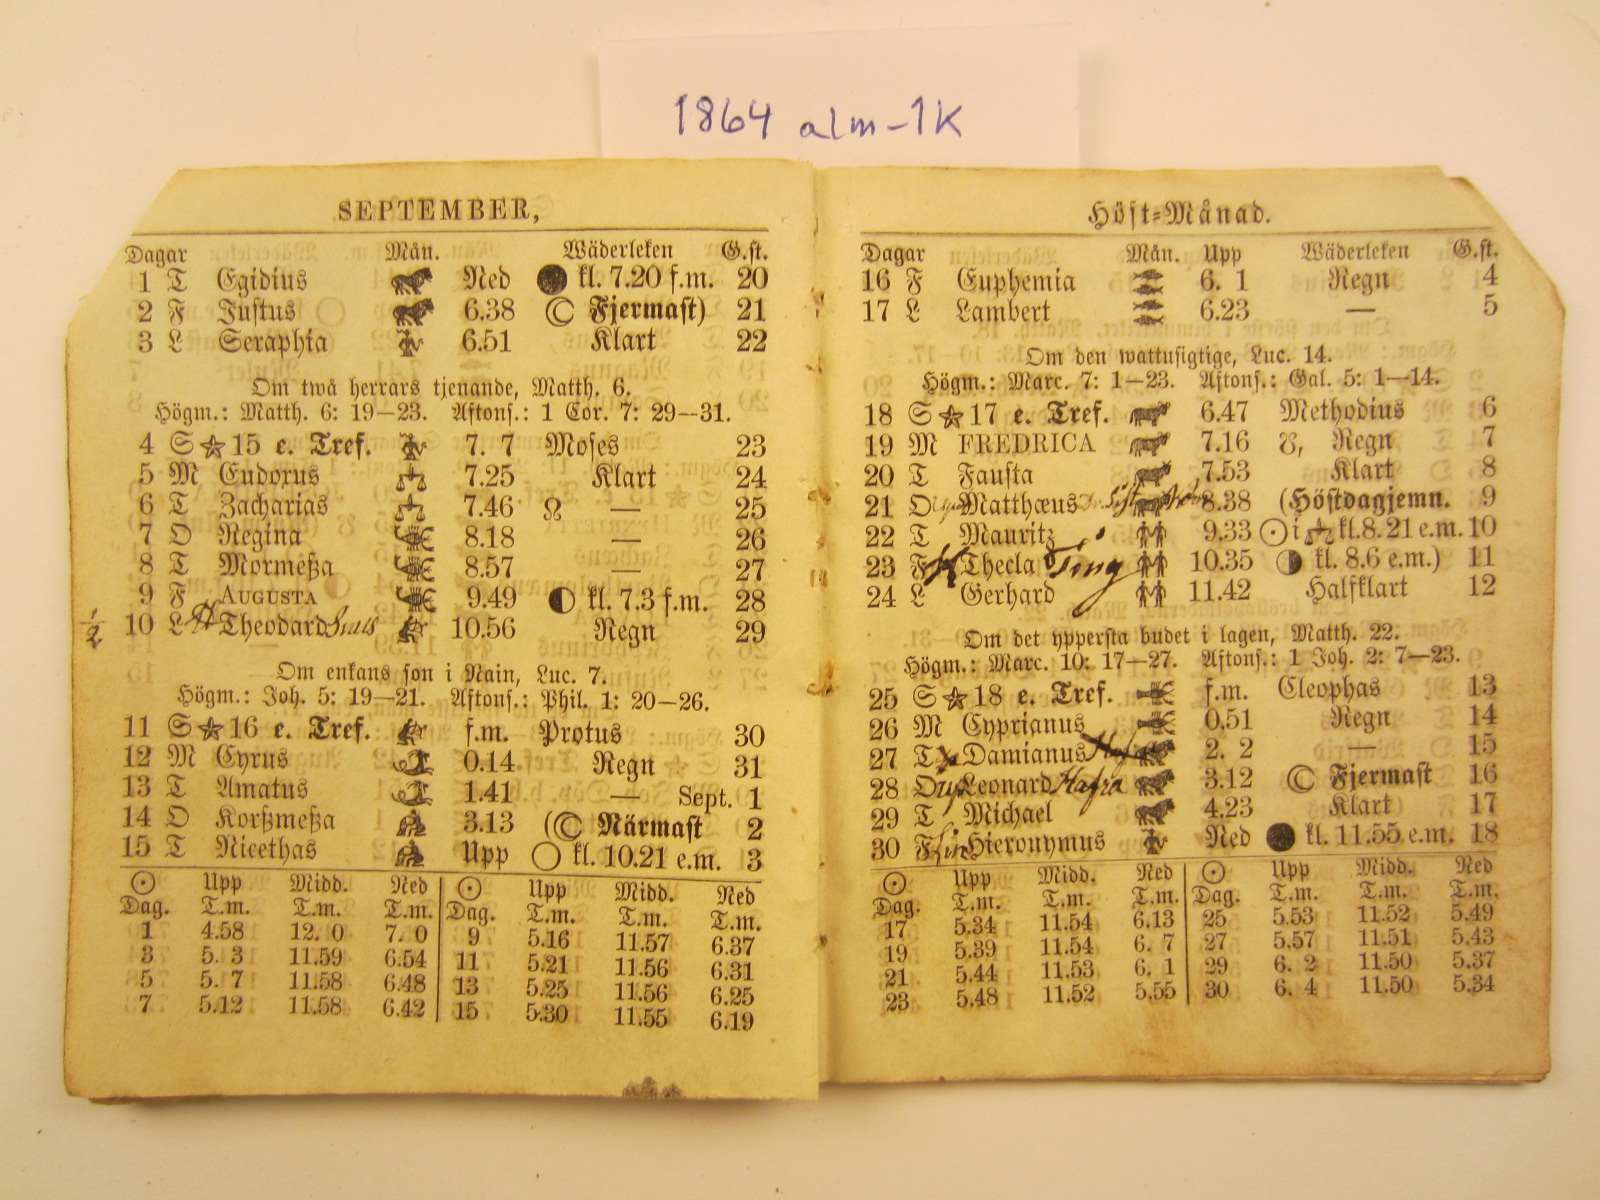 1864 alm-1K
SEPTEMBER,
Dagar Mån. Wäderleken G.st.
1 T Egidius Ned kl. 7.20 f.m. 20
2 F Justus 6.38 Fjermast) 21
3 L Seraphia 6.51 Klart 22
Om twå herrars tjenande, Matth. 6.
Högm.: Matth. 6: 19—23. Aftons.: 1 Cor. 7: 29—31.
4 S 15 e. Tref. 7. 7 Moses 23
5 M Eudoxus 7.25 Klart 24
6 T Zacharias 7.46 ☊ — 25
7 O Regina 8.18 — 26
8 T Mormeßa 8.57 — 27
9 F AUGUSTA 9.49 kl. 7.3 f.m. 28
½ 10 L Theodard 10.56 Regn 29
Om enkans son i Nain, Luc. 7.
Högm.: Joh. 5: 19—21. Aftons.: Phil. 1: 20—26.
11 S 16 e. Tref. f.m. Protus 30
12 M Cyrus 0.14 Regn 31
13 T Amatus 1.41 — Sept. 1
14 O Korßmeßa 3.13 ( Närmast 2
15 T Nicethas Upp kl. 10.21 e.m. 3
☉ Upp Midd. Ned ☉ Upp Midd. Ned
Dag. T.m. T.m. T.m. Dag. T.m. T.m. T.m.
1 4.58 12. 0 7. 0 9 5.16 11.57 6.37
3 5. 3 11.59 6.54 11 5.21 11.56 6.31
5 5. 7 11.58 6.48 13 5.25 11.56 6.25
7 5.12 11.58 6.42 15 5.30 11.55 6.19
Höst-Månad.
Dagar Mån. Upp Wäderleken G.st.
16 F Euphemia 6. 1 Regn 4
17 L Lambert 6.23 — 5
Om den wattusigtige, Luc. 14.
Högm.: Marc. 7: 1—23. Aftons.: Gal. 5: 1—14.
18 S 17 e. Tref. 6.47 Methodius 6
19 M FREDRICA 7.16 ☋, Regn 7
20 T Fausta 7.53 Klart 8
21 O Matthæus 8.38 (Höstdagjemn. 9
22 T Mauritz 9.33 ☉ i ♎ kl. 8.21 e.m. 10
23 F Thecla Ting 10.35 kl. 8.6 e.m.) 11
24 L Gerhard 11.42 Halfklart 12
Om det yppersta budet i lagen, Matth. 22.
Högm.: Marc. 10: 17—27. Aftons.: 1 Joh. 2: 7—23.
25 S 18 e. Tref. f.m. Cleophas 13
26 M Cyprianus 0.51 Regn 14
27 T Damianus 2. 2 — 15
28 O Leonard Hafra 3.12 Fjermast 16
29 T Michael 4.23 Klart 17
30 F Hieronymus Ned kl. 11.55 e.m. 18
☉ Upp Midd. Ned ☉ Upp Midd. Ned
Dag. T.m. T.m. T.m. Dag. T.m. T.m. T.m.
17 5.34 11.54 6.13 25 5.53 11.52 5.49
19 5.39 11.54 6. 7 27 5.57 11.51 5.43
21 5.44 11.53 6. 1 29 6. 2 11.50 5.37
23 5.48 11.52 5.55 30 6. 4 11.50 5.34